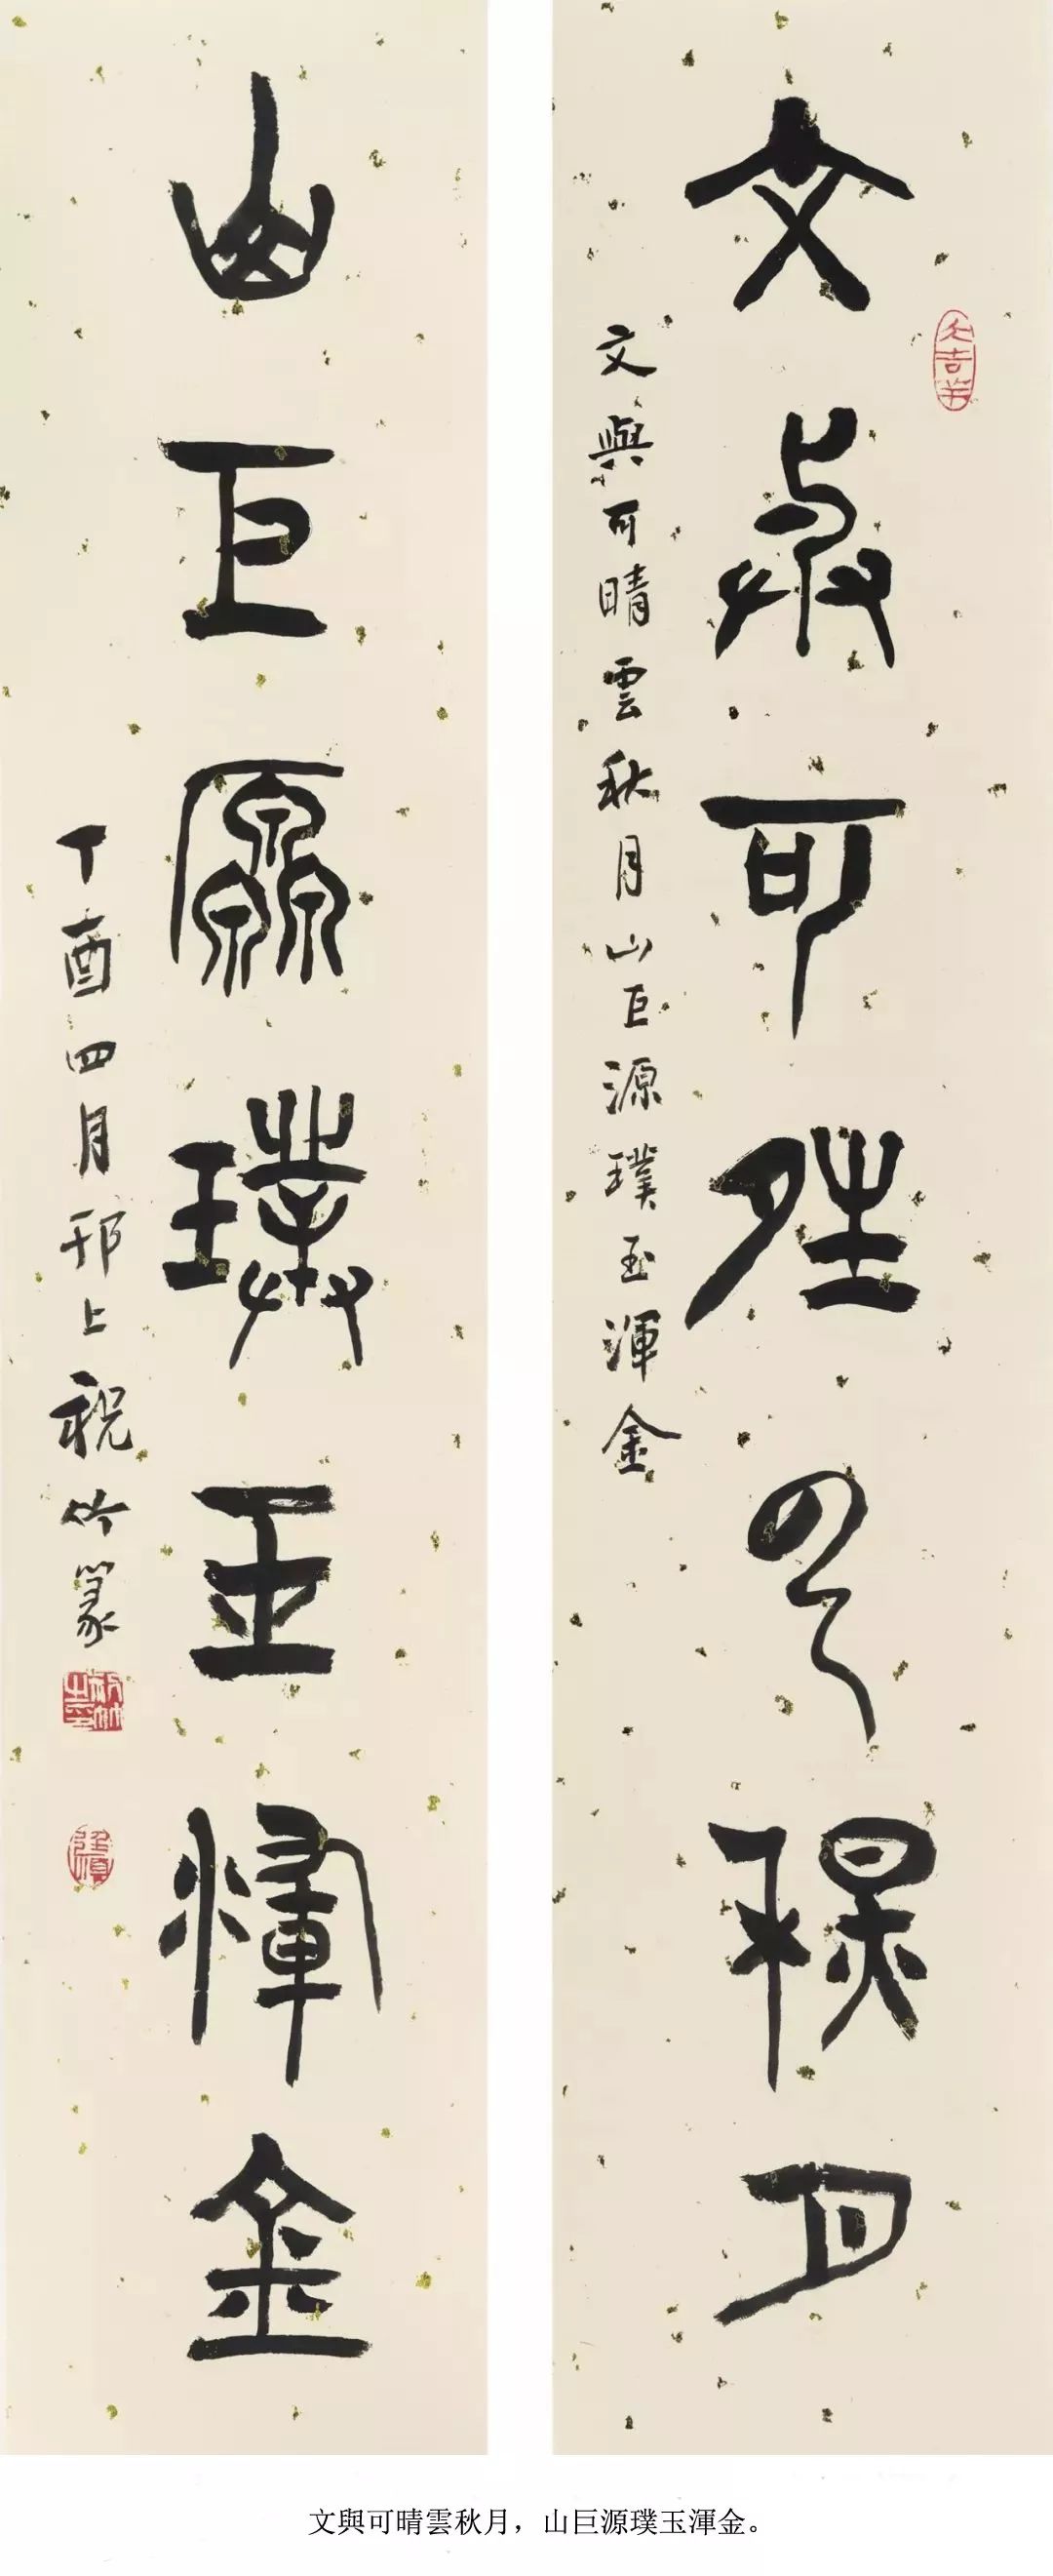 文與可晴雲秋月
文與可晴雲秋月山巨源璞玉渾金
山巨源璞玉渾金
丁酉四月邗上祝竹篆
文與可晴雲秋月，山巨源璞玉渾金。